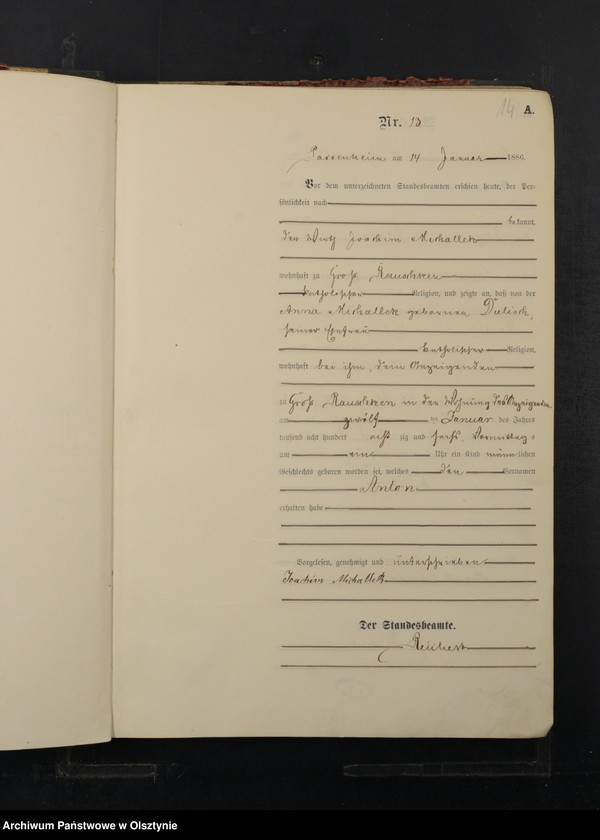 14 A.
Nr. 13
Passenheim am 14 Januar 1886.
Vor dem unterzeichneten Standesbeamten erschien heute, der Per-
sönlichkeit nach
bekannt,
der Wirth Joachim Michallek
wohnhaft zu Groß Rauschken
katholischer Religion, und zeigte an, daß von der
Anna Michallek geborenen
seiner Ehefrau
katholischer Religion,
wohnhaft bei ihm, dem Anzeigenden
zu Groß Rauschken in der Wohnung des Anzeigenden
am zwölf Januar des Jahres
tausend acht hundert acht zig und sechs, Vormittags
um ein Uhr ein Kind männlichen
Geschlechts geboren worden sei, welches den Vornamen
Anton
erhalten habe
Vorgelesen, genehmigt und unterschrieben
Joachim Michallek
Der Standesbeamte.
Archiwum Państwowe w Olsztynie